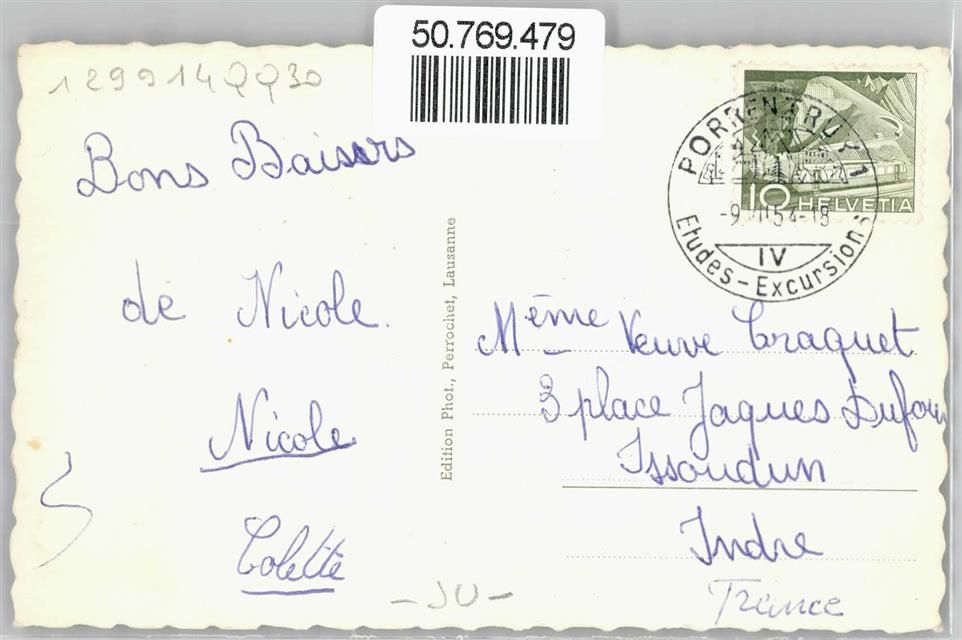 50.769.479
129914QQ30
Bons Baisers
de Nicole.
Nicole
Colette
Edition Phot., Perrochet, Lausanne
PORRENTRUY 1
-9. VII 54-18
IV
Etudes-Excursions
10 HELVETIA
Mème Veuve Craquet
3 place Jaques Dufour
Issoudun
Indre
France
-JU-